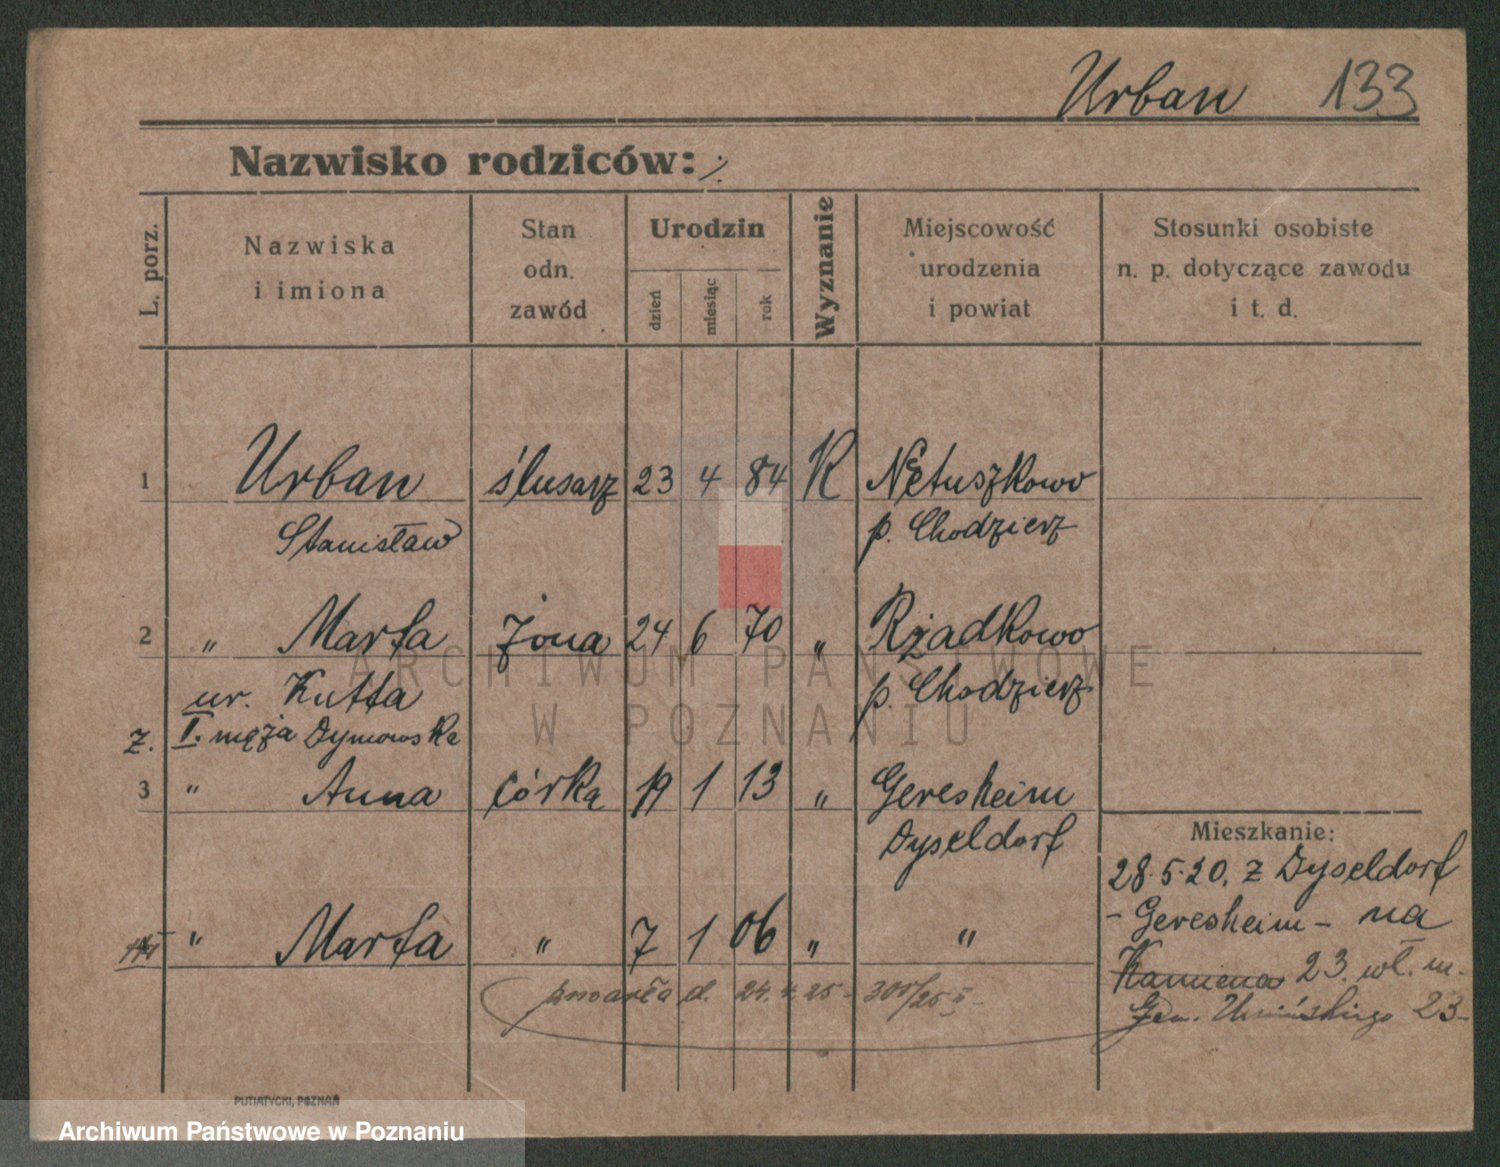 Urban 133
Nazwisko rodziców:
L. porz.
Nazwiska i imiona
Stan odn. zawód
Urodzin
dzień miesiąc rok
Wyznanie
Miejscowość urodzenia i powiat
Stosunki osobiste n. p. dotyczące zawodu i t. d.
1 Urban ślusarz 23 4 84 K Nętuszkowo
Stanisław p. Chodzież
2 „ Marta żona 24 6 70 „ Rządkowo
ur. Kutta p. Chodzież
z. I. męża Dymowska
3 „ Anna córka 19 1 13 „ Geresheim
Dyseldorf
Mieszkanie:
28.5.20. z Dyseldorf
- Geresheim - na
„ Marta „ 7 1 06 „ „
Kamienna 23. wł. m.
zmarła d. 24. 4. 25 - 305/25 II -
Gen. Umińskiego 23 -
PUTIATYCKI, POZNAŃ
ARCHIWUM PAŃSTWOWE
W POZNANIU
Archiwum Państwowe w Poznaniu